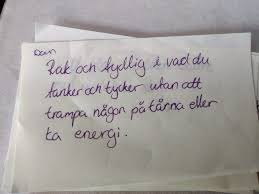 Dan
Rak och tydlig i vad du
tanker och tycker utan att
trampa någon på tårna eller
ta energi.